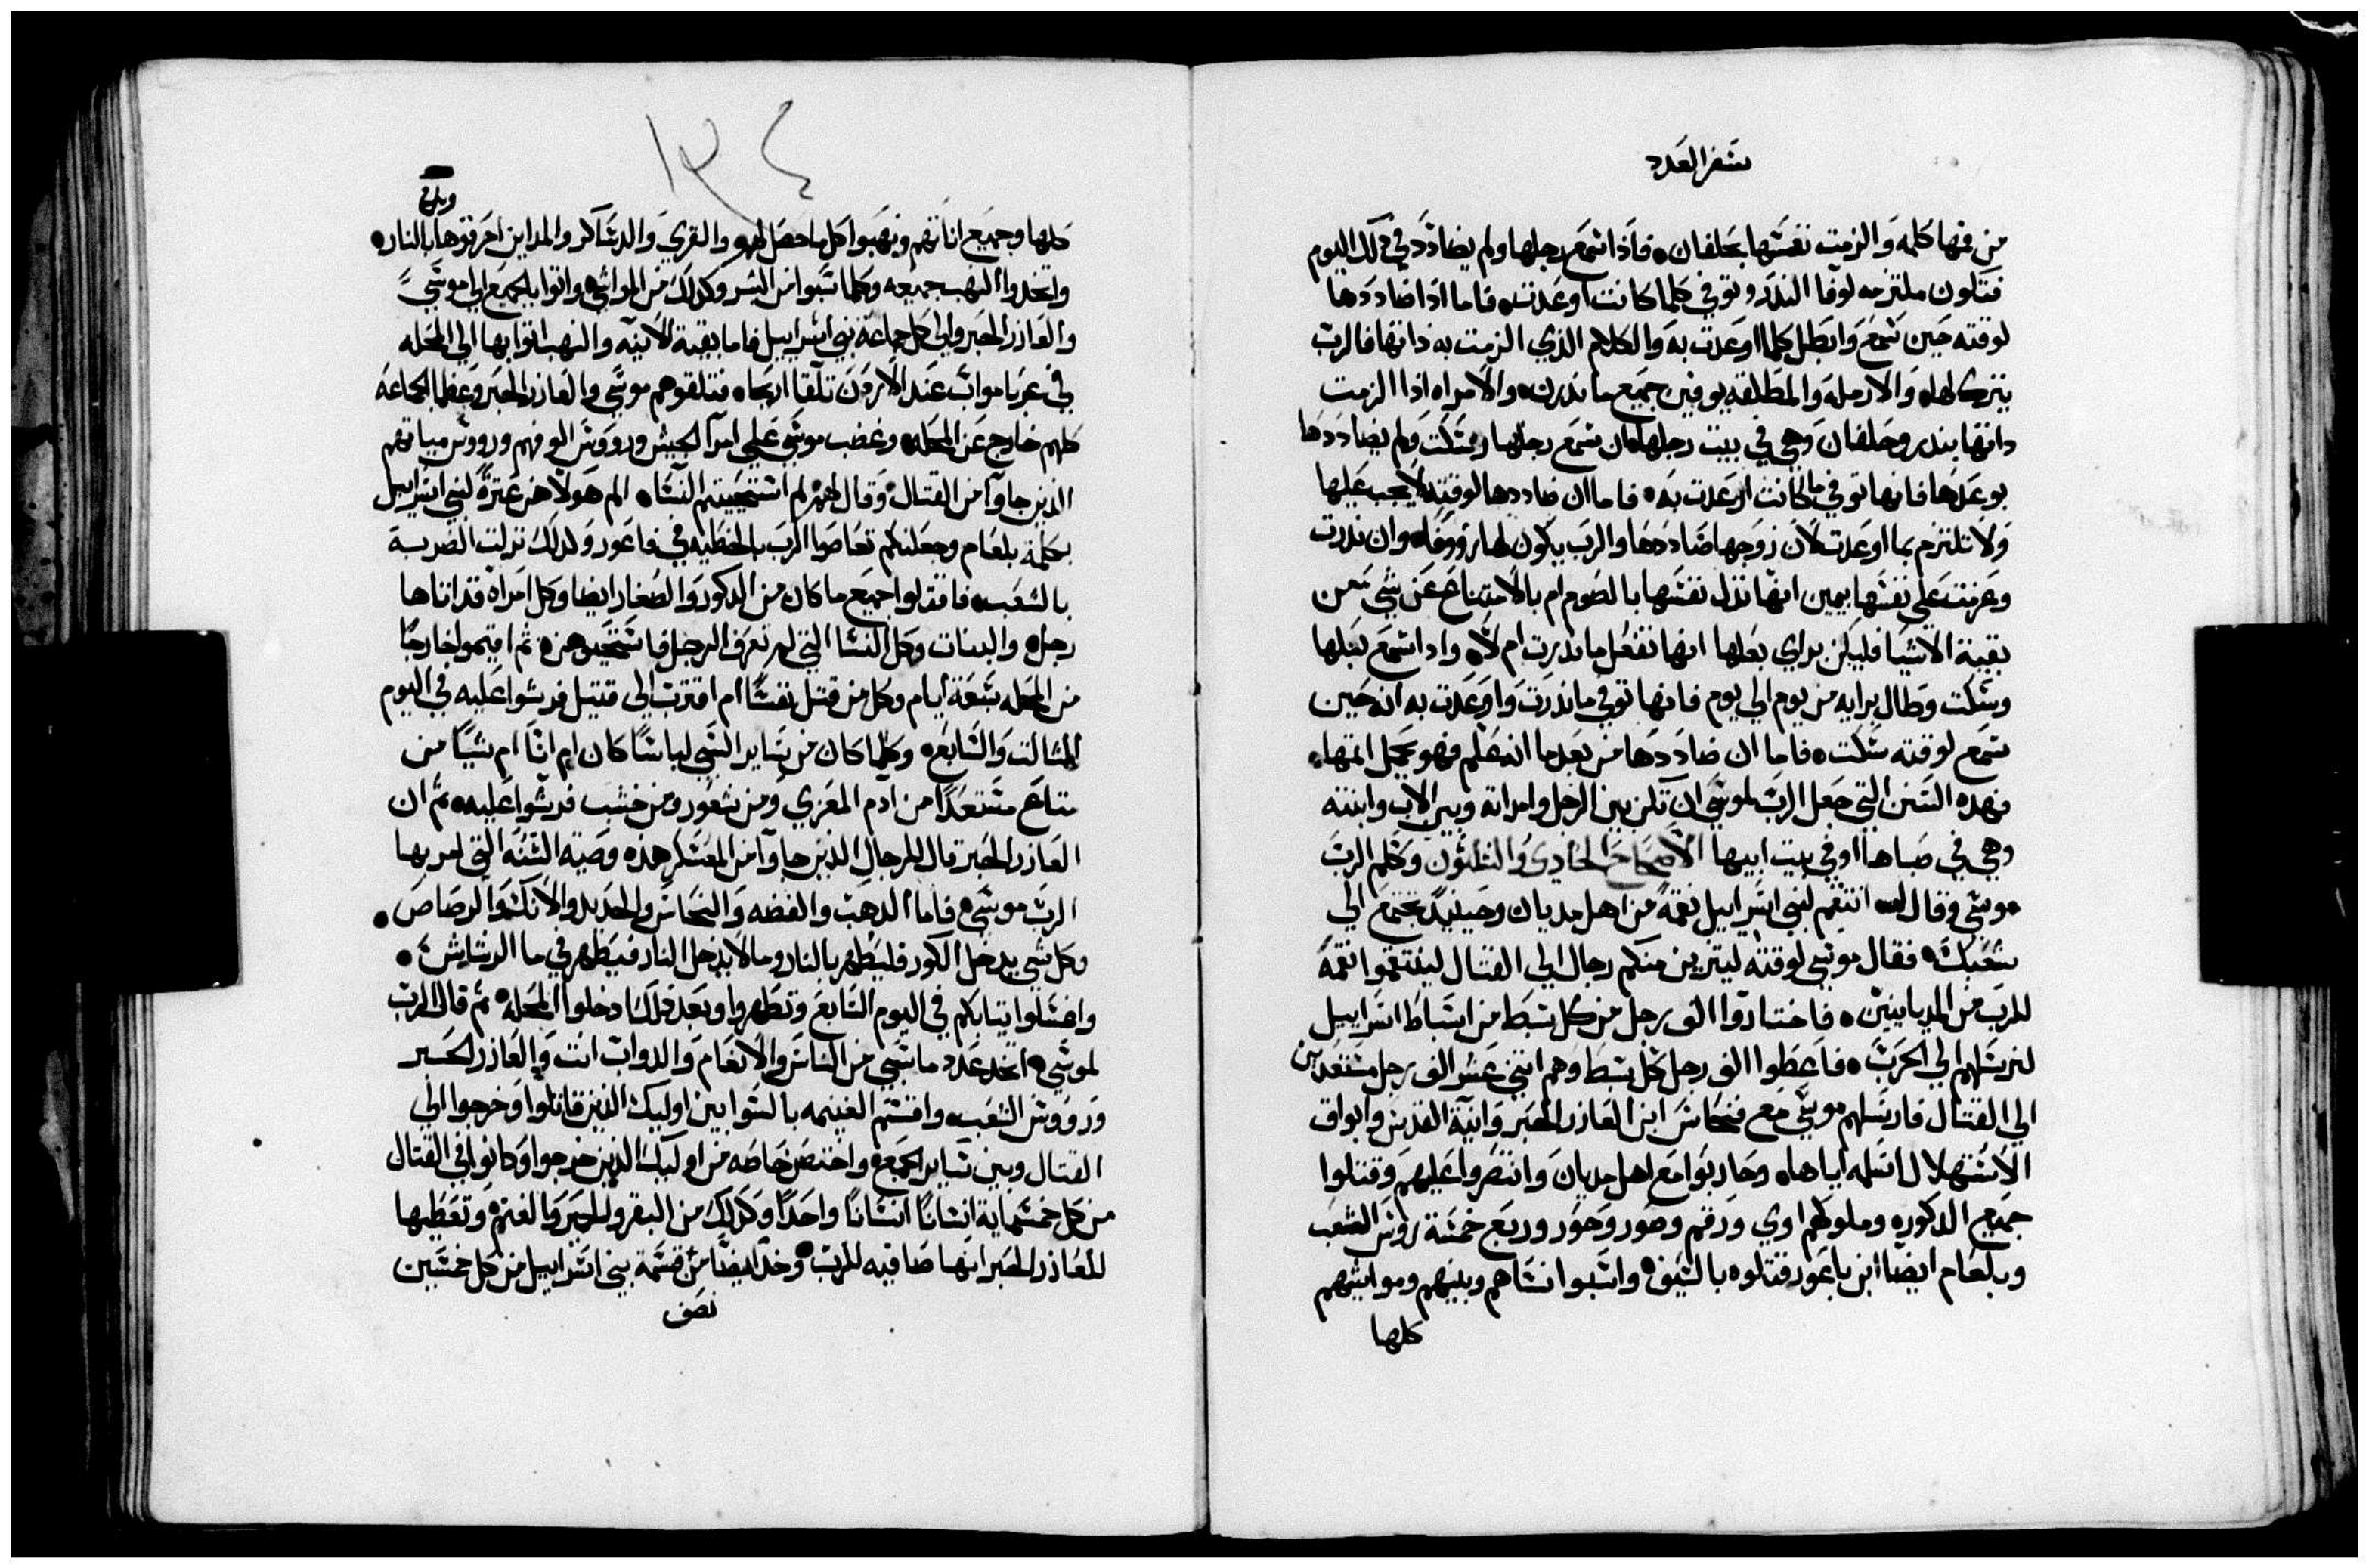 سفر العدد
من فمها كلمه والزمت نفسها بحلفان ٠ فاذا سمع رجلها ولم يضادد في ذلك اليوم
فتكون ملتزمه لوفا الندر وتوفي كلما كانت اوعدت ٠ فاما اذا ضاددها
لوقته حين سمع وابطل كلما اوعدت به والكلام الذي الزمت به ذاتها فالرب
يترك لها ٠ والارمله والمطلقه يوفين جميع ما ندرن ٠ والامراه اذا الزمت
داتها بندر وحلفان وهي في بيت رجلها فان سمع رجلها وسكت ولم يضاددها
بوعدها فانها توفي ما كانت اوعدت به ٠ فاما ان ضاددها لوقته لا يجب عليها
ولا تلتزم بما اوعدت لان زوجها ضاددها والرب يكون لها رووفا ٠ وان ندرت
وعزمت علي نفسها بيمين انها تذل نفسها بالصوم ام بالامتناع عن شي من
بقية الاشيا فليكن براي بعلها انها تفعل ما ندرت ام لا ٠ واداسمع بعلها
وسكت وطال برايه من يوم الي يوم فانها توفي ما ندرت واوعدت به انه حين
سمع لوقته سكت ٠ فاما ان ضاددها من بعد ما انه علم فهو يحمل اثمها ٠
فهده السنن التي جعل الرب لموسي ان تكن بين الرجل وامراته وبين الاب وابنته
وهي في صباها او في بيت ابيها الاصحاح الحادي والثلثون وكلم الرب
موسي وقال له ٠ انتقم لبني اسراييل نقمة من اهل مديان وحينيد تجتمع الي
شعبك ٠ فقال موسي لوقته ليتزين منكم رجال الي القتال لينتقموا نقمة
للرب من المديانيين ٠ فاختاروا الف رجل من كل سبط من اسباط اسراييل
لنرسلهم الي الحرب ٠ فاعطوا الف رجل كل سبط وهم اثني عشر الف رجل مستعدين
الي القتال فارسلهم موسي مع فنحاس ابن العازر الحبر وانية القدس وابواق
الاستهلال اسلمه اياها ٠ وحاربوا مع اهل مديان وانتصروا عليهم وقتلوا
جميع الدكوره وملوكهم اوي ورقم وصور وحور وربع خمسة روس الشعب
وبلعام ايضا ابن باعور قتلوه بالسيف ٠ واسبوا نساهم وبنيهم ومواشيهم
كلها
١٣٤
كلها وجميع اثاثهم ونهبوا كل ما حصل لهم والقري والدساكر والمداين احرقوها بالنار ٠
واتخدوا النهب جميعه وكلما سبوا من البشر وكدلك من المواشي ٠ واتوا بالجميع الي موسي
والعازر الحبر والي كل جماعة بني اسراييل فاما بقية الانيه والنهب اتوا بها الي المحله
في عربا مواب عند الاردن تلقا اريحا ٠ فتلقوهم موسي والعازر الحبر وعظما الجماعة
كلهم خارج عن المحله ٠ وغضب موسي علي امرا الجيش ورووس الوفهم ورووس مياتهم
الذين جاوا من القتال ٠ وقال لهم لم استحييتم النسا ٠ الم هولا هن عترة لبني اسراييل
بكلمة بلعام وجعلنكم تعاصوا الرب بالخطيه في فاعور ولدلك نزلت الضربة
بالشعب ٠ فاقتلوا جميع ما كان من الدكور والصغار ايضا وكل امراه قد اتاها
رجل ٠ والبنات وكل النسا التي لم تعرف الرجل فاستحيوهن ٠ ثم اقيموا خارجا
من المحله سبعة ايام وكل من قتل نفسا ام اقترب الي قتيل فرشوا عليه في اليوم
الثالت والسابع ٠ وكلما كان من ساير السبي لباسا كان ام اناا ام شيا من
متاع مستعدا من ادم المعزي ومن شعور ومن خشب فرشوا عليه ٠ ثم ان
العازر الحبر قال للرجال الدين جاوا من المعسكر هذه وصية السنه التي امر بها
الرب موسي ٠ فاما الدهب والفضه والنحاس والحديد والانك والرصاص ٠
وكل شي يدخل الكور فليطهر بالنار وما لا يدخل النار فيطهر في ما الرشاش ٠
واغسلوا ثيابكم في اليوم السابع وتطهروا وبعد ذلك ادخلوا المحله ٠ ثم قال الرب
لموسي ٠ اتخد عدد ما سبي من الناس والانعام والدواب انت والعازر الحبر
ورووس الشعب ٠ واقسم الغنيمه بالسوا بين اوليك الذين قاتلوا وخرجوا الي
القتال وبين ساير الجمع ٠ واختص خاصه من اوليك الذين خرجوا وكانوا في القتال
من كل خمسماية انسانا انسانا واحدا وكدلك من البقر والحمير والغنم ٠ وتعطيها
للعازر الحبر انها صافيه للرب ٠ وخد ايضا من قسمة بني اسراييل من كل خمسين
نصف